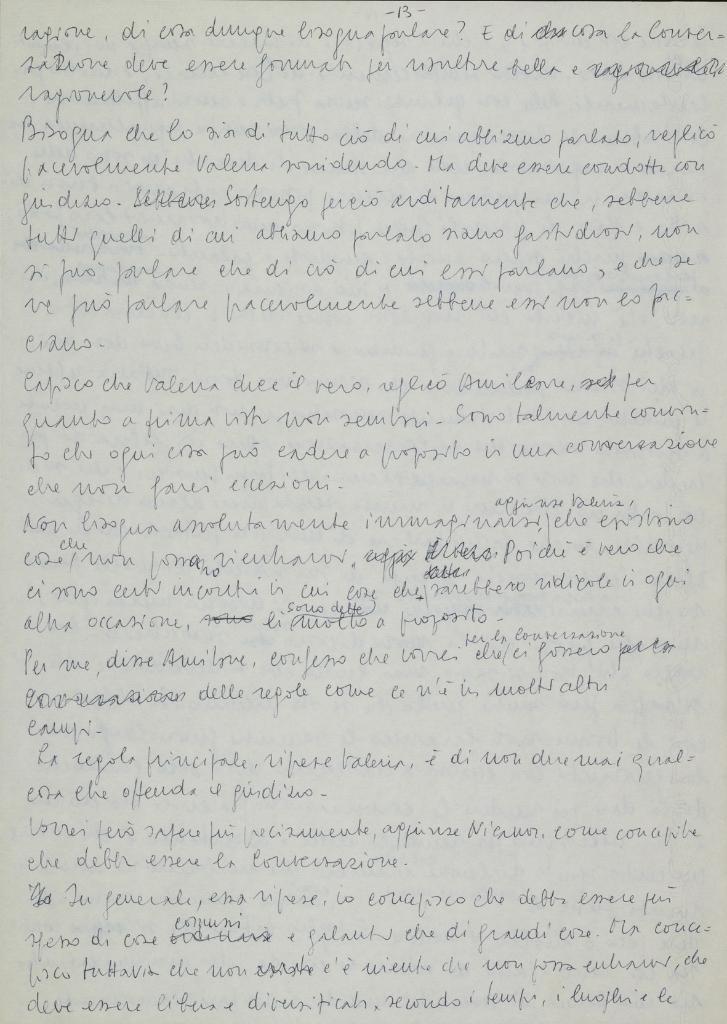 -13-
ragione, di cosa dunque bisogna parlare? E di cosa la Conver=
sazione deve essere formata per risultare bella e
ragionevole?
Bisogna che lo sia di tutto ciò di cui abbiamo parlato, replicò
piacevolmente Valeria sorridendo. Ma deve essere condotta con
giudizio. Sostengo perciò arditamente che, sebbene
tutti quelli di cui abbiamo parlato siano fastidiosi, non
si può parlare che di ciò di cui essi parlano, e che se
ne può parlare piacevolmente sebbene essi non lo fac=
ciano.
Capisco che Valeria dice il vero, replicò Amilcare, per
quanto a prima vista non sembri. Sono talmente convin=
to che ogni cosa può cadere a proposito in una conversazione
che non farei eccezioni.
Non bisogna assolutamente immaginarsi, aggiunse Valeria, che esistino
cose che non possano rientrarvi. Poiché è vero che
ci sono certi incontri in cui cose che sarebbero ridicole in ogni
altra occasione, li sono dette a proposito.
Per me, disse Amilcare, confesso che vorrei che per la Conversazione ci fossero
delle regole come ce n'è in molti altri
campi.
La regola principale, riprese Valeria, è di non dire mai qual=
cosa che offenda il giudizio.
Vorrei però sapere più precisamente, aggiunse Nicanor, come concepite
che debba essere la Conversazione.
In generale, essa riprese, io concepisco che debba essere più
spesso di cose comuni e galanti che di grandi cose. Ma conce=
pisco tuttavia che non c'è niente che non possa entrarvi, che
deve essere libera e diversificata, secondo i tempi, i luoghi e le